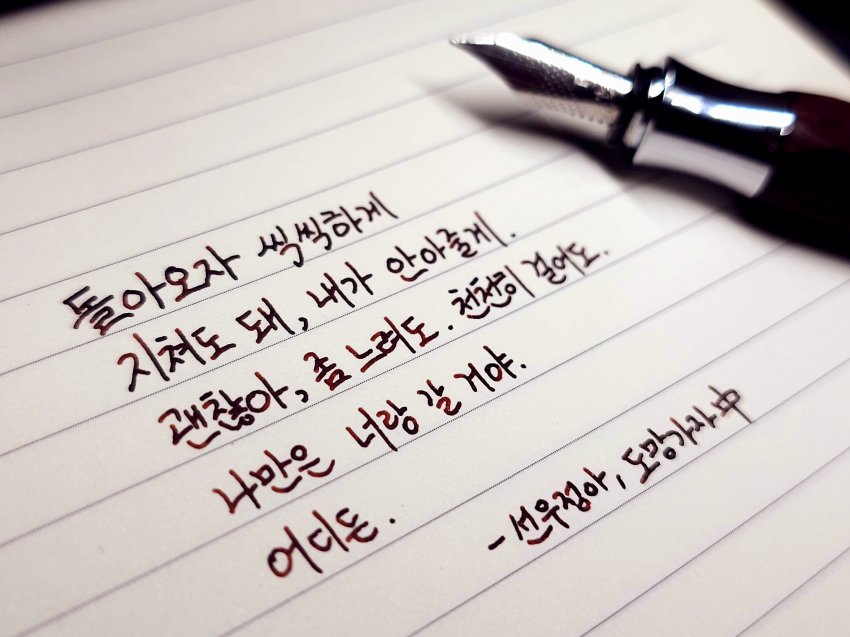 돌아오자 씩씩하게
지쳐도 돼, 내가 안아줄게.
괜찮아, 좀 느려도. 천천히 걸어도.
나만은 너랑 갈 거야.
어디든.
- 선우정아, 도망가자 中